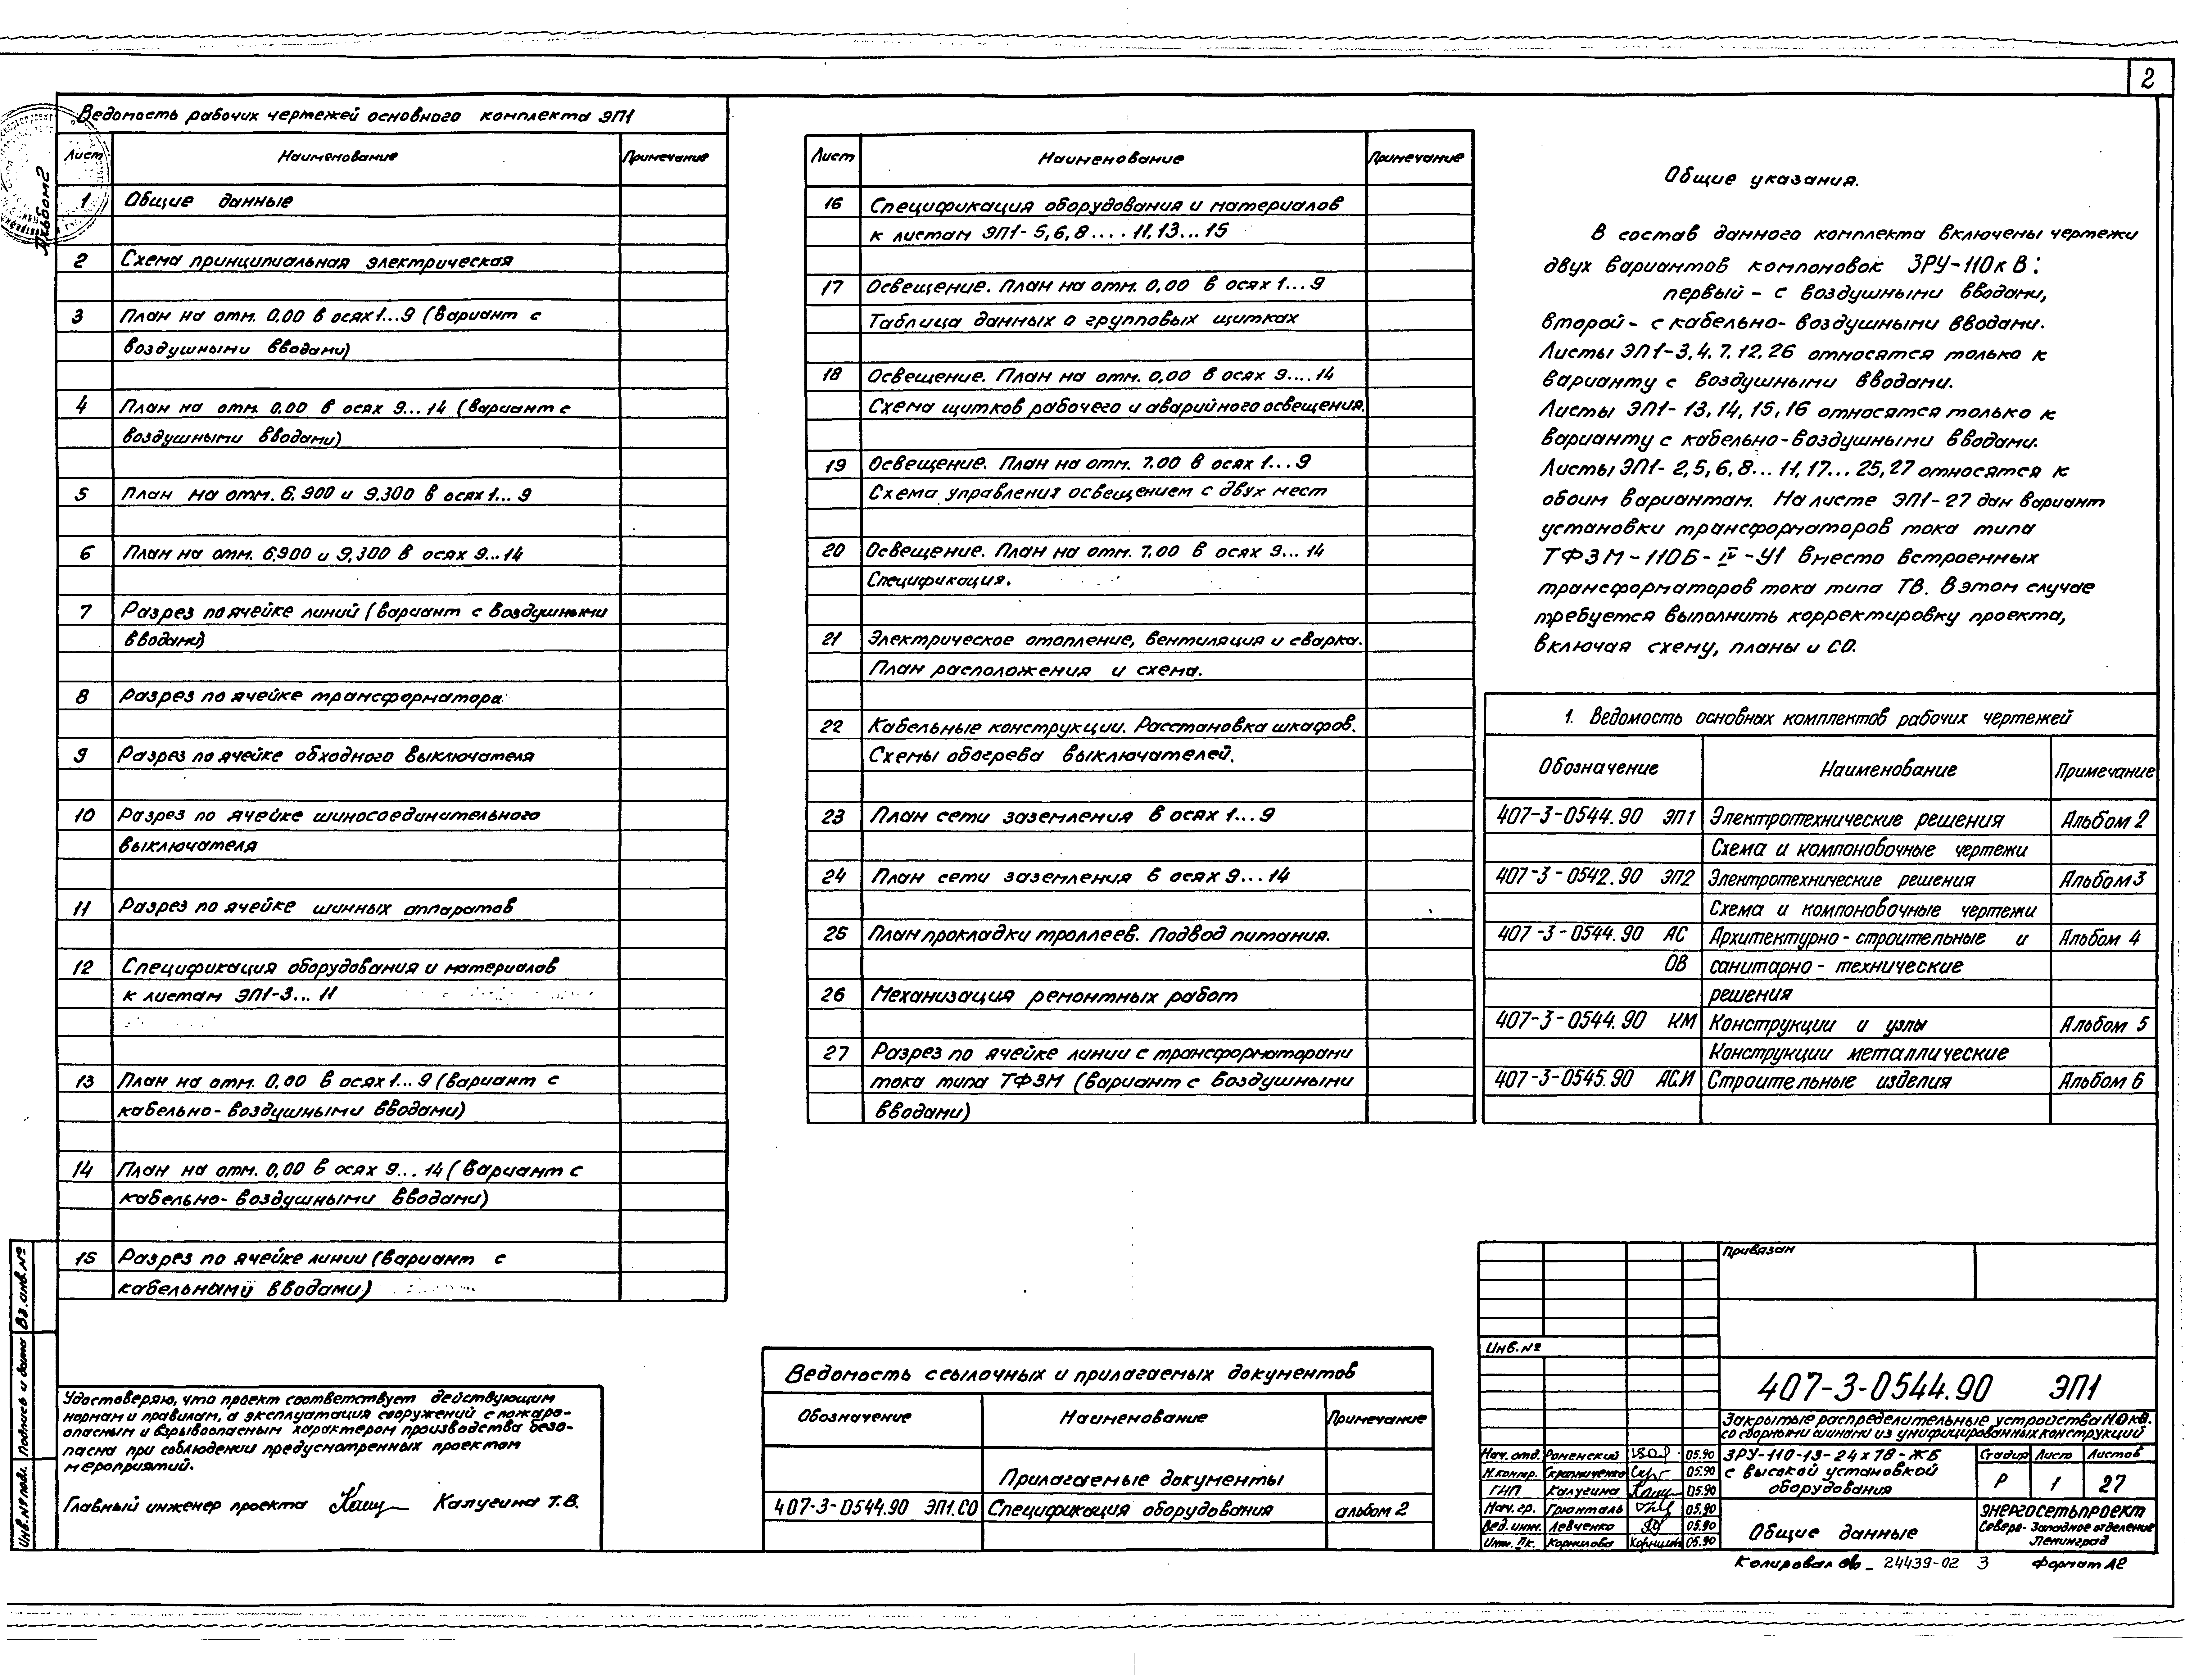 2
Альбом 2
Ведомость рабочих чертежей основного комплекта ЭП1
Лист Наименование Примечание
1 Общие данные
2 Схема принципиальная электрическая
3 План на отм. 0.00 в осях 1...9 (вариант с
воздушными вводами)
4 План на отм. 0.00 в осях 9...14 (вариант с
воздушными вводами)
5 План на отм. 6.900 и 9.300 в осях 1...9
6 План на отм. 6,900 и 9,300 в осях 9...14
7 Разрез по ячейке линий (вариант с воздушными
вводами)
8 Разрез по ячейке трансформатора
9 Разрез по ячейке обходного выключателя
10 Разрез по ячейке шиносоединительного
выключателя
11 Разрез по ячейке шинных аппаратов
12 Спецификация оборудования и материалов
к листам ЭП1-3...11
13 План на отм. 0,00 в осях 1...9 (вариант с
кабельно-воздушными вводами)
14 План на отм. 0,00 в осях 9...14 (вариант с
кабельно-воздушными вводами)
15 Разрез по ячейке линии (вариант с
кабельными вводами)
Лист Наименование Примечание
16 Спецификация оборудования и материалов
к листам ЭП1-5,6,8....11,13...15
17 Освещение. План на отм. 0,00 в осях 1...9
Таблица данных о групповых щитках
18 Освещение. План на отм. 0,00 в осях 9....14
Схема щитков рабочего и аварийного освещения.
19 Освещение. План на отм. 7.00 в осях 1...9
Схема управления освещением с двух мест
20 Освещение. План на отм. 7.00 в осях 9...14
Спецификация.
21 Электрическое отопление, вентиляция и сварка.
План расположения и схема.
22 Кабельные конструкции. Расстановка шкафов.
Схемы обогрева выключателей.
23 План сети заземления в осях 1...9
24 План сети заземления в осях 9...14
25 План прокладки троллеев. Подвод питания.
26 Механизация ремонтных работ
27 Разрез по ячейке линии с трансформаторами
тока типа ТФЗМ (вариант с воздушными
вводами)
Общие указания.
В состав данного комплекта включены чертежи
двух вариантов компоновок ЗРУ-110кВ:
первый - с воздушными вводами,
второй - с кабельно-воздушными вводами.
Листы ЭП1-3,4,7,12,26 относятся только к
варианту с воздушными вводами.
Листы ЭП1-13,14,15,16 относятся только к
варианту с кабельно-воздушными вводами.
Листы ЭП1-2,5,6,8...11,17...25,27 относятся к
обоим вариантам. На листе ЭП1-27 дан вариант
установки трансформаторов тока типа
ТФЗМ-110Б-IV-У1 вместо встроенных
трансформаторов тока типа ТВ. В этом случае
требуется выполнить корректировку проекта,
включая схему, планы и СО.
1. Ведомость основных комплектов рабочих чертежей
Обозначение Наименование Примечание
407-3-0544.90 ЭП1 Электротехнические решения Альбом 2
Схема и компоновочные чертежи
407-3-0542.90 ЭП2 Электротехнические решения Альбом 3
Схема и компоновочные чертежи
407-3-0544.90 АС Архитектурно-строительные и Альбом 4
ОВ санитарно-технические
решения
407-3-0544.90 КМ Конструкции и узлы Альбом 5
Конструкции металлические
407-3-0545.90 АС.И Строительные изделия Альбом 6
Удостоверяю, что проект соответствует действующим
нормам и правилам, а эксплуатация сооружений с пожаро-
опасным и взрывоопасным характером производства безо-
пасна при соблюдении предусмотренных проектом
мероприятий.
Главный инженер проекта Калугина Т.В.
Ведомость ссылочных и прилагаемых документов
Обозначение Наименование Примечание
Прилагаемые документы
407-3-0544.90 ЭП1.СО Спецификация оборудования альбом 2
Привязан
Инв.№
407-3-0544.90 ЭП1
Закрытые распределительные устройства 110 кв.
со сборными шинами из унифицированных конструкций
Нач. отд. Роменский 05.90
Н.контр. 05.90
ГИП Калугина 05.90
Нач. гр. Грюнталь 05.90
Вед. инж. Левченко 05.90
Корнилова 05.90
ЗРУ-110-13-24x78-ЖБ
с высокой установкой
оборудования
Стадия Лист Листов
Р 1 27
Общие данные
ЭНЕРГОСЕТЬПРОЕКТ
Северо-Западное отделение
Ленинград
Копировал 24439-02 3 Формат А2
Инв.№ подл. Подпись и дата Вз. инв. №